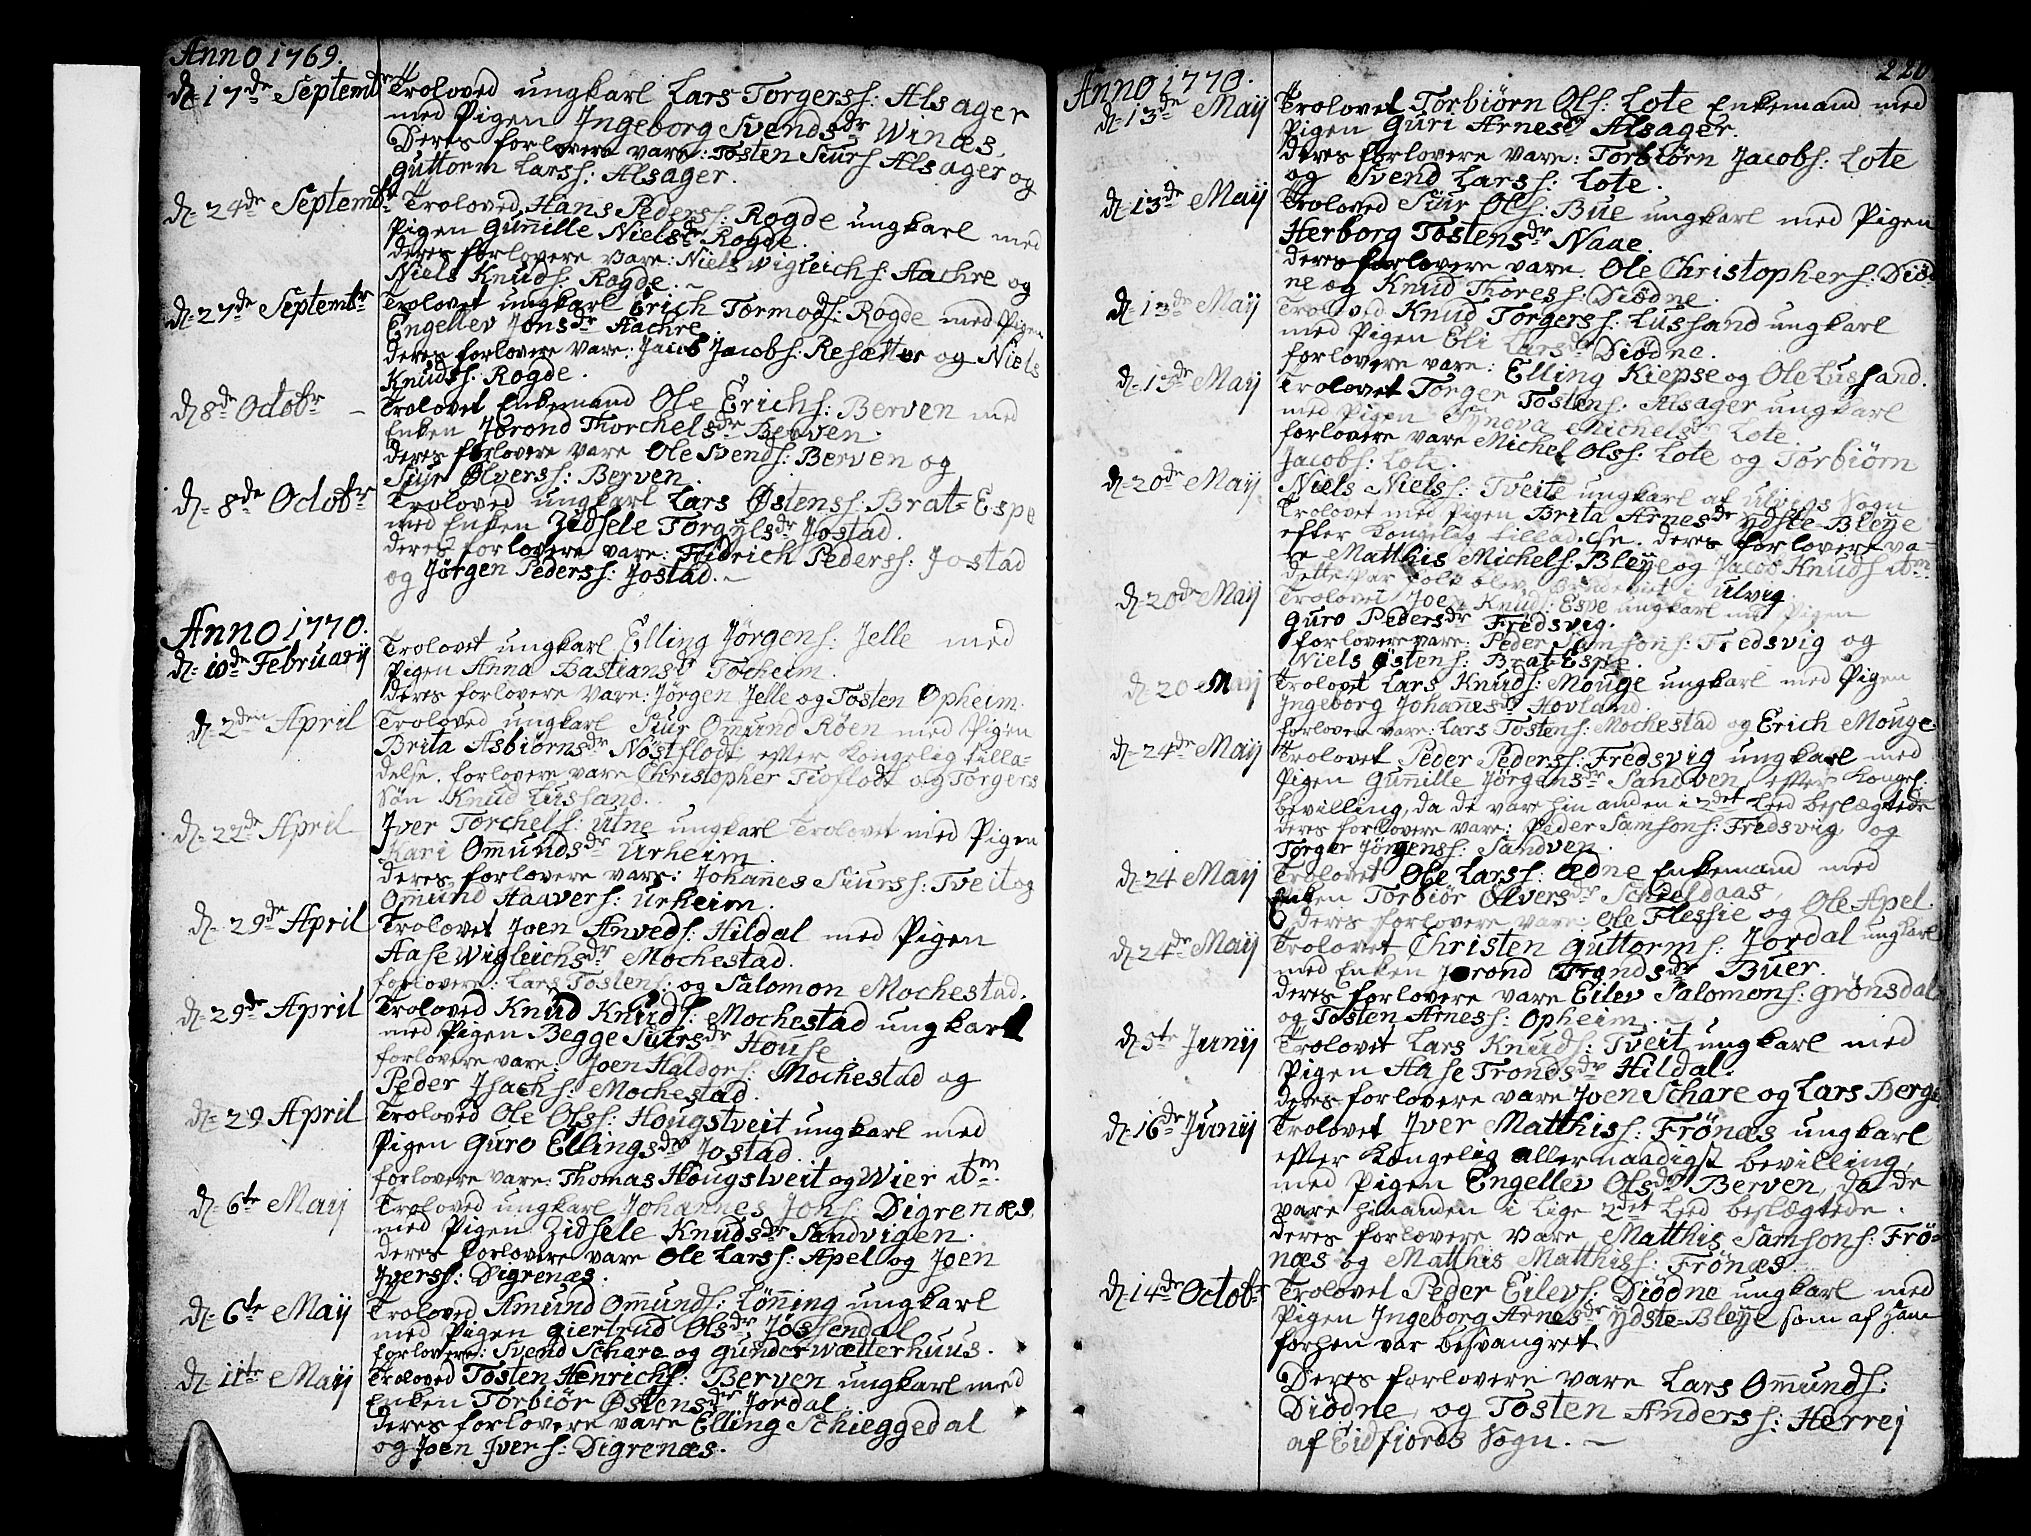 Anno 1769.
d. 17de Septembr Troloved ungkarl Lars Torgerss: Alsager
med Pigen Ingeborg Svendsdr Winæs.
Deres forlovere vare: Tosten Siurs Alsager og
Guttorm Larss: Alsager.
d. 24de Septembr Troloved Hans Pederss: Rogde ungkarl med
Pigen Gunille Nielsdr Rogde.
deres forlovere vare: Niels Wigleichs: Aachre og
Niels Knuds: Rogde.
d. 27de Septembr Trolovet ungkarl Erich Tormods: Rogde med Pigen
Engellev Jonsdr Aachre.
deres forlovere vare: Jacob Jacobs: Resætter og Niels
Knudss: Rogde.
d. 8de Octobr – Trolovet Enkemand Ole Erichs: Berven med
Enken Jørond Thorchelsdr Berven.
deres forlovere vare Ole Svends: Berven og
Siur Olverss: Berven.
d. 8de Octobr Troloved ungkarl Lars Østenss: Brat=Espe
med Enken Zidsele Torgylsdr Jostad.
deres forlovere vare: Fridrich Pederss: Jostad
og Jørgen Pederss: Jostad. –
Anno 1770.
d. 10de Februarij Trolovet ungkarl Elling Jørgens: Jelle med
Pigen Anna Bastiansdr Tocheim.
deres forlovere vare: Jørgen Jelle og Tosten Opheim.
d. 2den April Troloved ungkarl Siur Omund Røen med Pigen
Brita Asbiørnsdr Nøstflodt, efter kongelig tilla-
delse. forlovere vare Christopher Tioflodt og Torgers
Søn Knud Lussand.
d. 22de April Iver Torchels: Utne ungkarl Trolovet med Pigen
Kari Omundsdr Urheim.
deres forlovere vare: Johannes Siurss: Tveit og
Omund Haavers: Urheim.
d. 29de April Trolovet Joen Anveds: Hildal med Pigen
Aase Wigleichsdr Mochestad.
forlovere: Lars Tostens: og Salomon Mochestad.
d. 29de April Troloved Knud Knuds: Mochestad ungkarl
med Pigen Begge Siursdr House
forlovere vare: Joen Haldors: Mochestad og
Peder Isachs: Mochestad.
d. 29 April Troloved Ole Olss: Hougstveit ungkarl med
Pigen Guro Ellingsdr Jostad.
forlovere vare: Thomas Hougstveit og Wier ibm.
d. 6te Maij Troloved ungkarl Johannes Johs: Digrenæs,
med Pigen Zidsele Knudsdr Sandvigen.
deres forlovere vare Ole Larss: Apel og Joen
Iverss: Digrenæs.
d. 6te Maij Troloved Amund Omunds: Lønning ungkarl
med Pigen Giertrud Olsdr Jøssendal
forlovere: Svend Schare og Gunder Wætterhuus.
d. 11te Maij Troloved Tosten Henrichs: Berven ungkarl med
Enken Torbiør Østensdr Jordal.
deres forlovere vare Elling Schieggedal
og Joen Ivers: Digrenæs.
220
Anno 1770.
d. 13de Maij Trolovet Torbiørn Ols: Lote Enkemand med
Pigen Guri Arnesdr Alsager.
deres forlovere vare: Torbiørn Jacobs: Lote
og Svend Larss: Lote.
d. 13de Maij Troloved Siur Ols: Bue ungkarl med Pigen
Herborg Tostensdr Naae.
deres forlovere vare. Ole Christophers: Diød-
ne og Knud Thoress: Diødne.
d. 13de Maij Troloved Knud Torgerss: Lussand ungkarl
med Pigen Eli Larsdr Diødne.
forlovere vare: Elling Kiepse og Ole Lussand.
d. 13de Maij Trolovet Torger Tostens: Alsager ungkarl
med Pigen Synova Michelsdr Lote.
forlovere vare Michel Olss: Lote og Torbiørn
Jacobs: Lote.
d. 20de Maij Niels Nielss: Tveite ungkarl af Ulvigs Sogn
Trolovet med Pigen Brita Arnesdr Ydste-Bleije
efter Kongelig tilladelse. deres forlovere va-
re Matthis Michels: Bleije og Jacob Knuds ibm.
dette Par blev i Ulvig.
d. 20de Maij Trolovet Joen Knuds: Espe ungkarl med Pigen
Guro Pedersdr Fredsvig.
forlovere vare: Peder Samsons: Fredsvig og
Niels Østens: Brat-Espe.
d. 20 Maij Trolovet Lars Knuds: Mouge ungkarl med Pigen
Ingeborg Johanesdr Hovland.
forlovere vare: Lars Tostens: Mochestad og Erich Mouge.
d. 24de Maij Trolovet Peder Peders: Fredsvig ungkarl med
Pigen Gunnille Jørgensdr Sandven, efter Kongel.
bevilling, da de vare hin anden i 2det Leed beslægtede
deres forlovere vare: Peder Samsons: Fredsvig og
Torger Jørgens: Sandven.
d. 24 Maij Trolovet Ole Larss: Ædne Enkemand med
Enken Torbiør Olversdr Scheldaas,
deres forlovere vare: Ole Flessie og Ole Apel.
d. 24de Maij Trolovet Christen Guttorms: Jordal ungkarl
med Enken Jorond Trondsdr Buer.
deres forlovere vare Eilev Salomons: Grønsdal
og Tosten Arness: Opheim.
d. 3te Junij Trolovet Lars Knuds: Tveit ungkarl med
Pigen Aase Trondsdr Hildal.
deres forlovere vare Joen Schare og Lars Berge
d. 16de Junij Trolovet Iver Matthiss: Frönæs ungkarl
efter Kongelig allernaadigst bevilling,
med Pigen Engellev Olsdr Berven, da de
vare hinanden i Lige 2det Leed beslægtede.
deres forlovere vare Matthis Samsons: Frö-
næs og Matthis Matthiss: Frönæs.
d. 14de Octobr Trolovet Peder Eilevs: Diødne ungkarl med
Pigen Ingeborg Arnesdr Ydste=Bleije som af ham
forhen var besvangret.
Deres forlovere vare Lars Omunds:
Diødne, og Tosten Anderss: Herrej
af Eidfiords Sogn. –